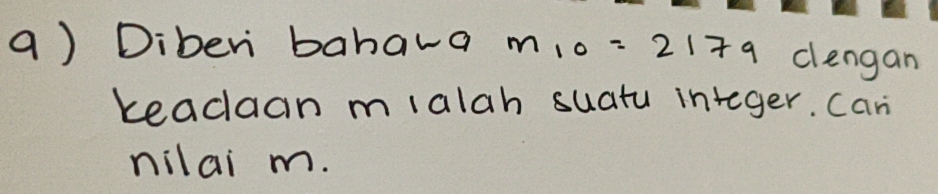 a) Diberi bahawa m₁₀ = 217₉ dengan
keadaan m ialah suatu integer. Cari
nilai m.